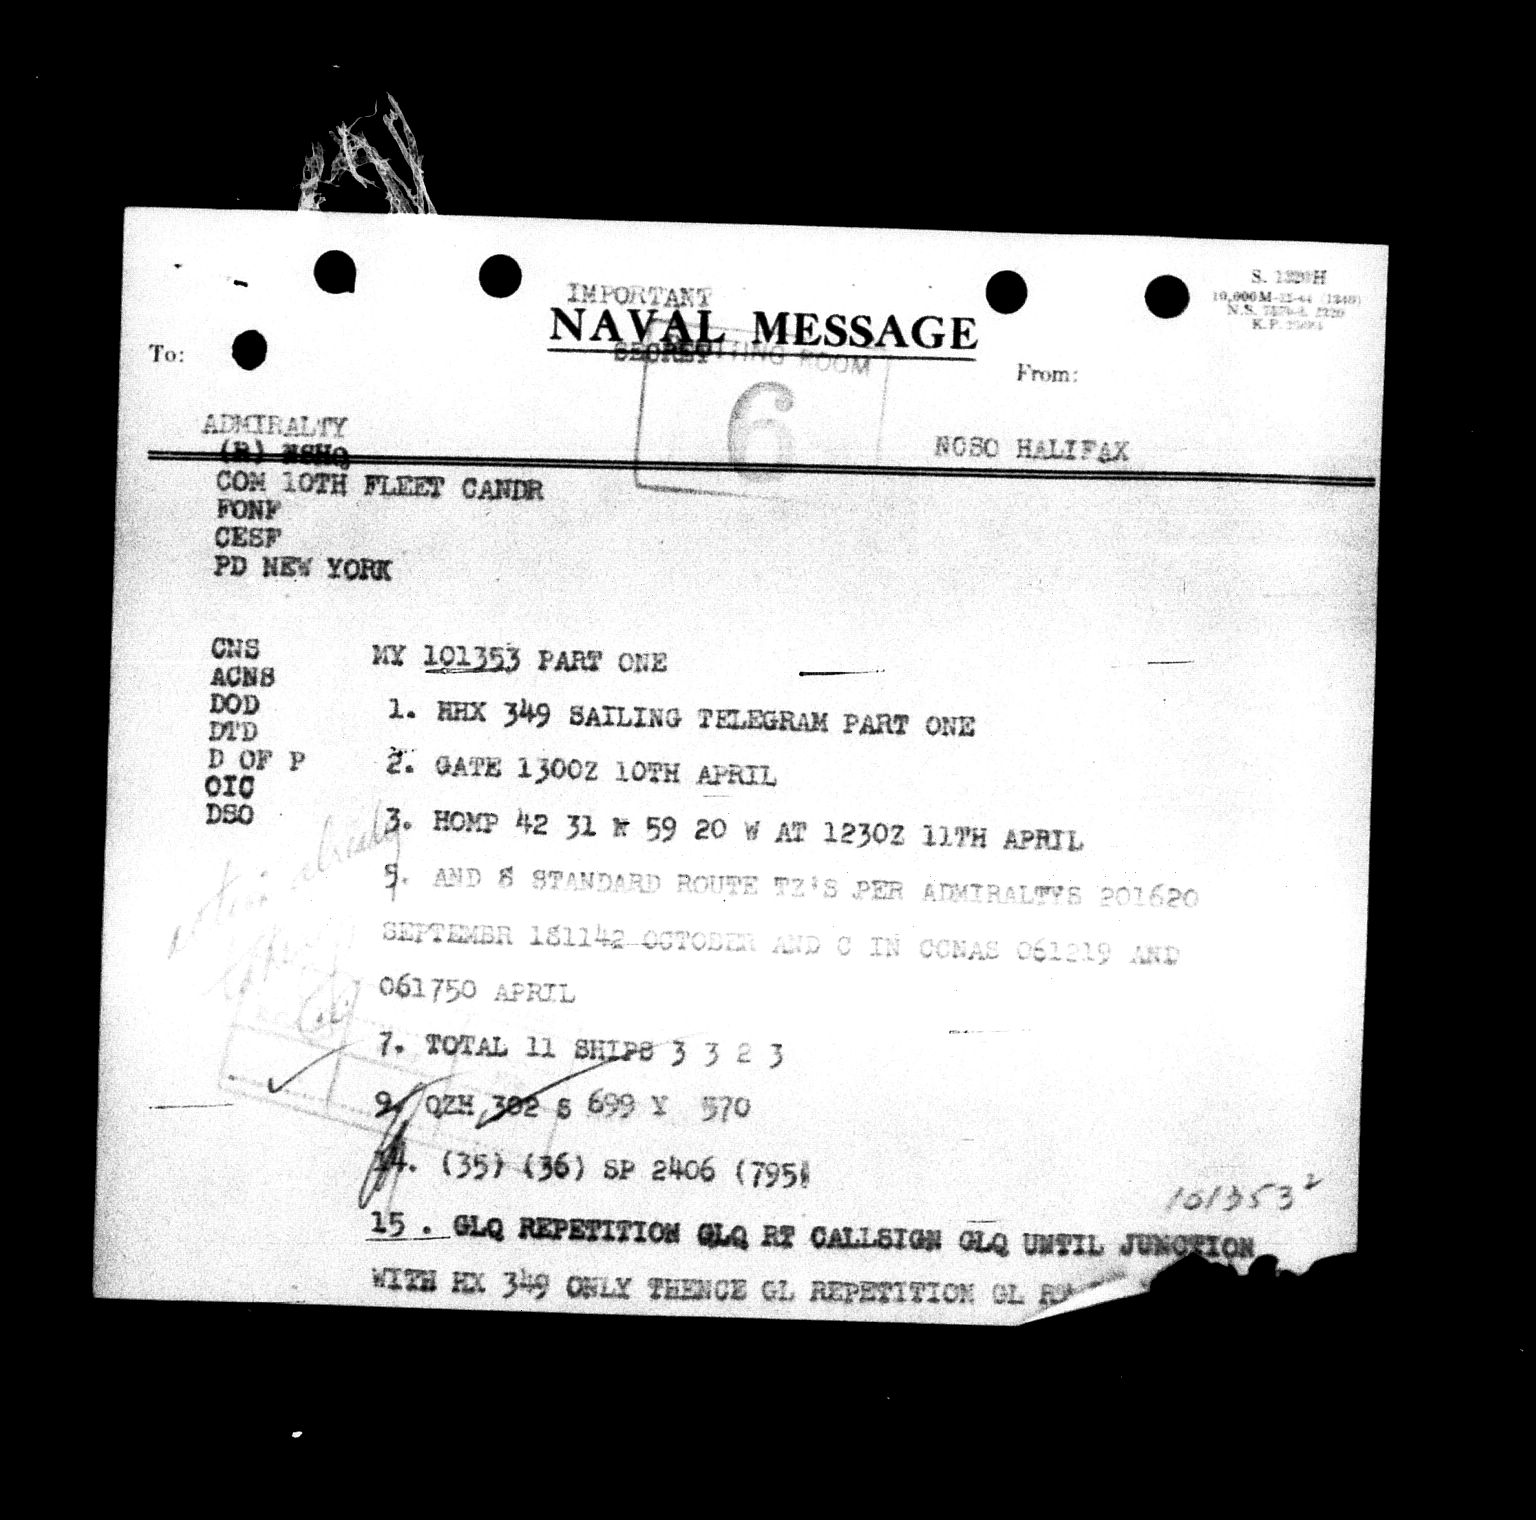 S. 1320H
IMPORTANT
NAVAL MESSAGE
SECRET
ROOM
6
To:
From:
ADMIRALTY
(R) NSHQ
NOSO HALIFAX
COM 10TH FLEET CANDR
FONF
CESF
PD NEW YORK
CNS
ACNS
DOD
DTD
D OF P
OIC
DSO
MY 101353 PART ONE
1. HHX 349 SAILING TELEGRAM PART ONE
2. GATE 1300Z 10TH APRIL
3. HOMP 42 31 N 59 20 W AT 1230Z 11TH APRIL
5. AND 8 STANDARD ROUTE TZ'S PER ADMIRALTYS 201620
SEPTEMBR 181142 OCTOBER AND C IN CCNAS 061219 AND
061750 APRIL
already
7. TOTAL 11 SHIPS 3 3 2 3
9. QZH 302 S 699 Y 570
14. (35) (36) SP 2406 (795)
101353²
15. GLQ REPETITION GLQ RT CALLSIGN GLQ UNTIL JUNCTION
WITH HX 349 ONLY THENCE GL REPETITION GL